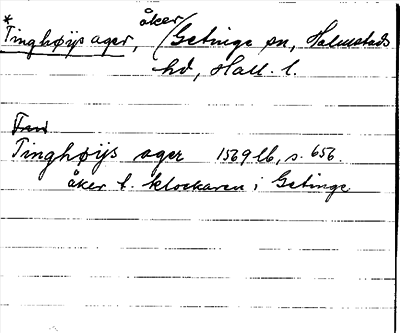 *Tinghøijs ager, åker / Getinge sn, Halmstads
hd, Hall. l.
Tinghøijs ager 1569 lb, s. 656.
åker t. klockaren i Getinge